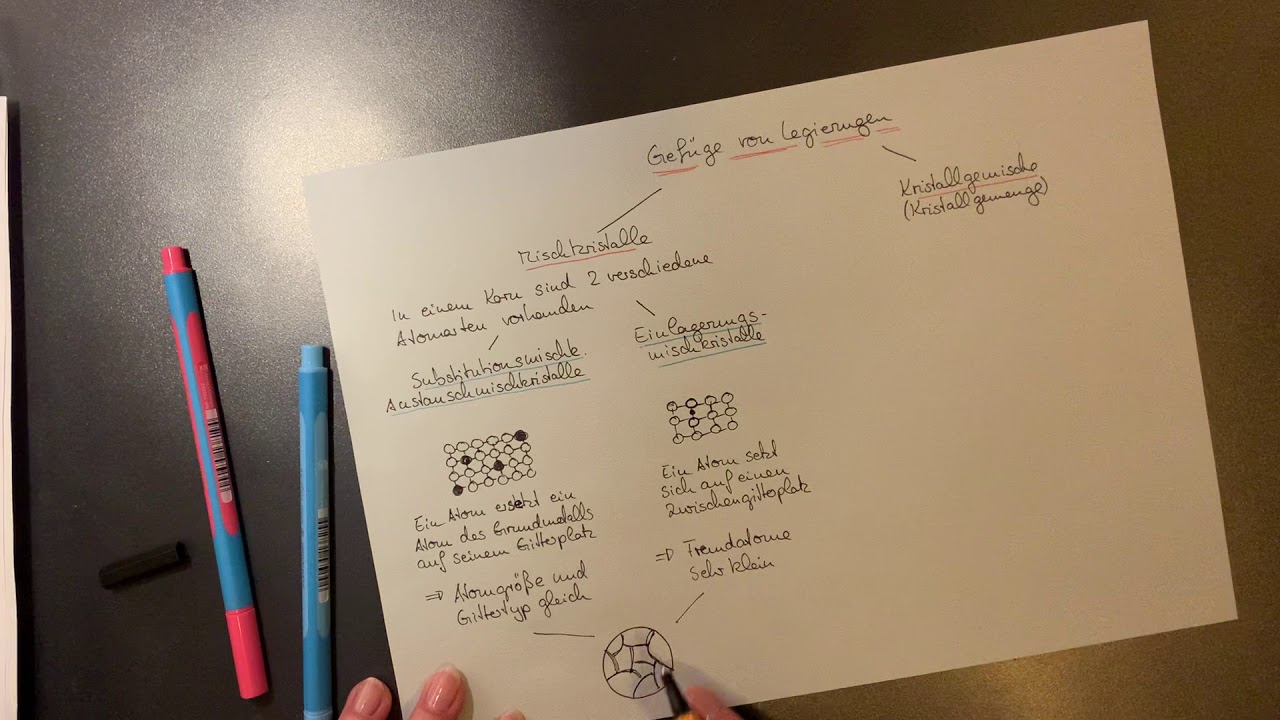 Gefüge von Legierugen
Kristallgemische
(Kristallgemenge)
Mischkristalle
In einem Korn sind 2 verschiedene
Atomarten vorhanden
Substitutionsmischk.
Austauschmischkristalle
Einlagerungs-
mischkristalle
Ein Atom ersetzt ein
Atom des Grundmetalls
auf seinem Gitterplatz
⇒ Atomgröße und
Gittertyp gleich
Ein Atom setzt
sich auf einen
Zwischengitterplatz
⇒ Fremdatome
sehr klein